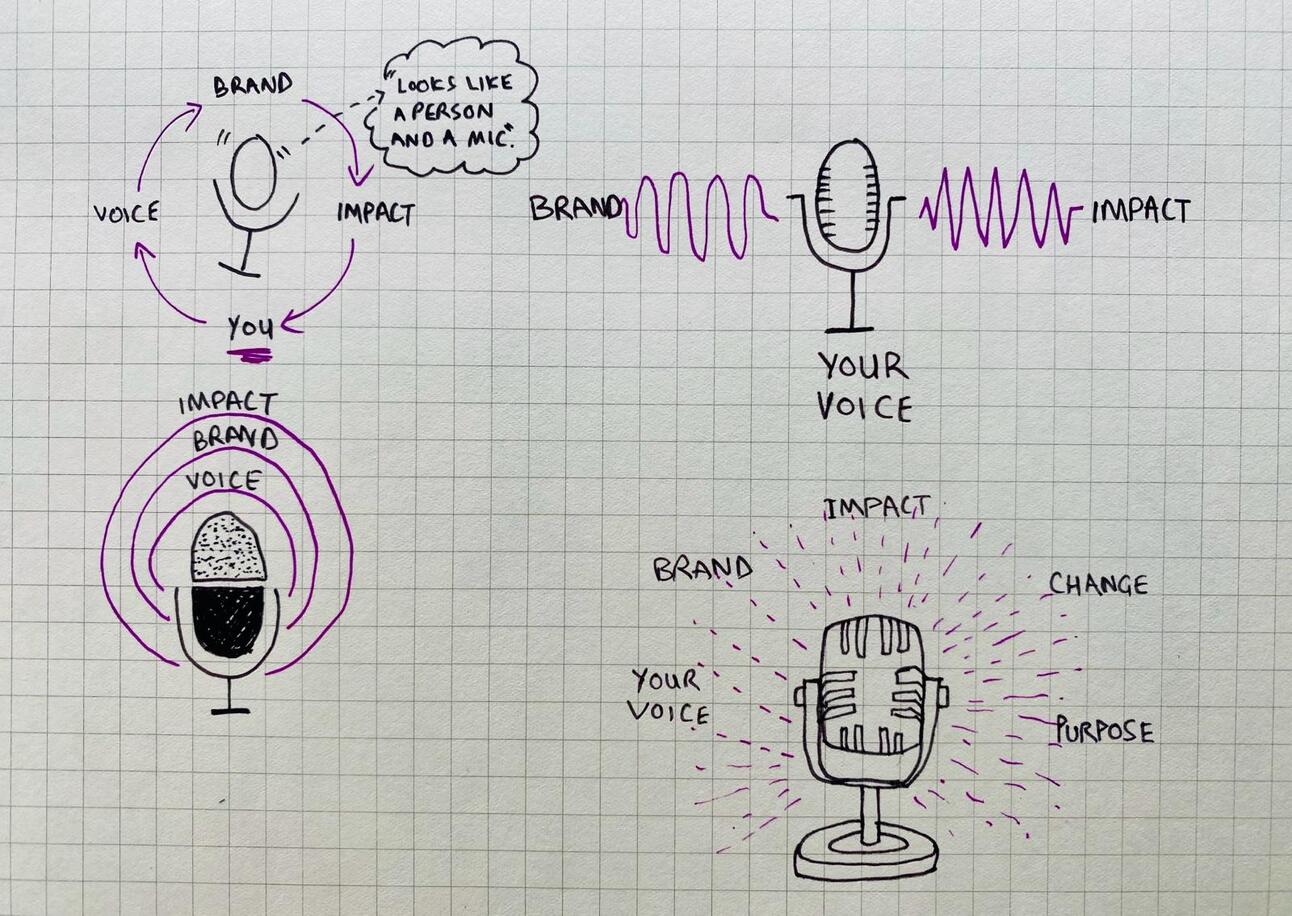 BRAND
"LOOKS LIKE
A PERSON
AND A MIC".
VOICE
IMPACT
YOU
BRAND
IMPACT
YOUR
VOICE
IMPACT
BRAND
VOICE
IMPACT
BRAND
CHANGE
YOUR
VOICE
PURPOSE